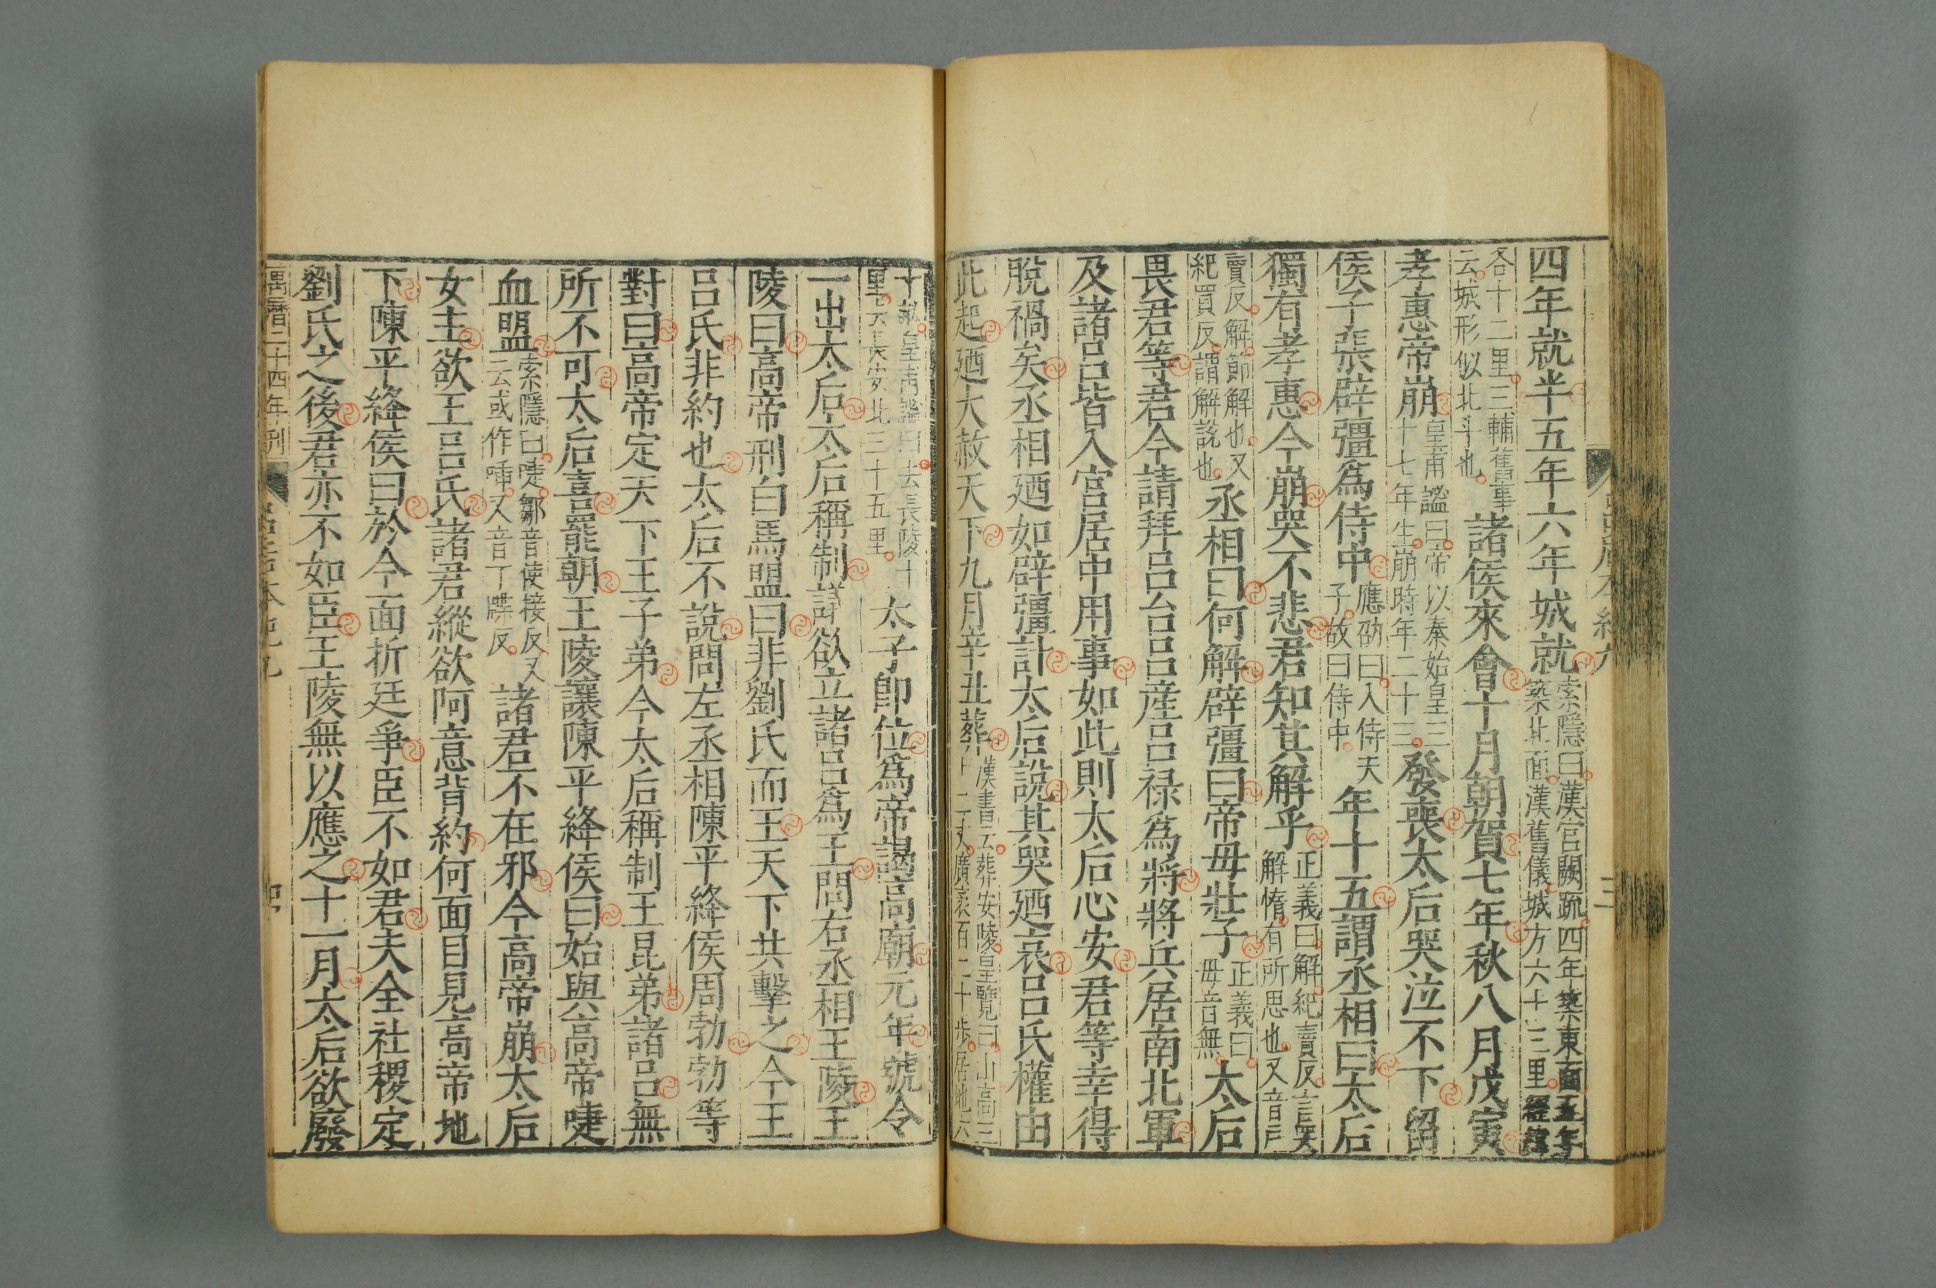 四年就半五年六年城就索隱曰漢宮闕疏四年築東面五年
築北面漢舊儀城方六十三里經緯
各十二里三輔舊事
云城形似北斗也諸侯來會十月朝賀七年秋八月戊寅
孝惠帝崩皇甫謐曰帝以秦始皇三
十七年生崩時年二十三發喪太后哭泣不下留
侯子張辟彊爲侍中應劭曰入侍天
子故曰侍中年十五謂丞相曰太后
獨有孝惠今崩哭不悲君知其解乎正義曰解紀賣反言哭
解惰有所思也又音戶
賣反解節解也又
紀買反謂解說也丞相曰何解辟彊曰帝毋壯子正義曰
毋音無太后
畏君等君今請拜呂台呂産呂祿爲將將兵居南北軍
及諸呂皆入宮居中用事如此則太后心安君等幸得
脫禍矣丞相廼如辟彊計太后說其哭廼哀呂氏權由
此起廼大赦天下九月辛丑葬漢書云葬安陵皇覽曰山高三
十二丈廣袤百二十步居地六
十畝皇甫謐曰去長陵十
里去長安北三十五里太子卽位爲帝謁高廟元年號令
一出太后太后稱制議欲立諸呂爲王問右丞相王陵王
陵曰高帝刑白馬盟曰非劉氏而王天下共擊之今王
呂氏非約也太后不說問左丞相陳平絳侯周勃勃等
對曰高帝定天下王子弟今太后稱制王昆弟諸呂無
所不可太后喜罷朝王陵讓陳平絳侯曰始與高帝啑
血盟索隱曰啑鄒音使接反又
云或作喢又音丁牒反諸君不在邪今高帝崩太后
女主欲王呂氏諸君縱欲阿意背約何面目見高帝地
下陳平絳侯曰於今面折廷爭臣不如君夫全社稷定
劉氏之後君亦不如臣王陵無以應之十一月太后欲廢
萬曆二十四年刊